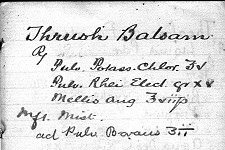 Thrush Balsam
℞
Pulv. Potass. Chlor. ʒv
Pulv. Rhei Elect. gr xv
Mellis ang ʒviiʃs
Mft. Mist.
ad Pulv Boracis ʒii